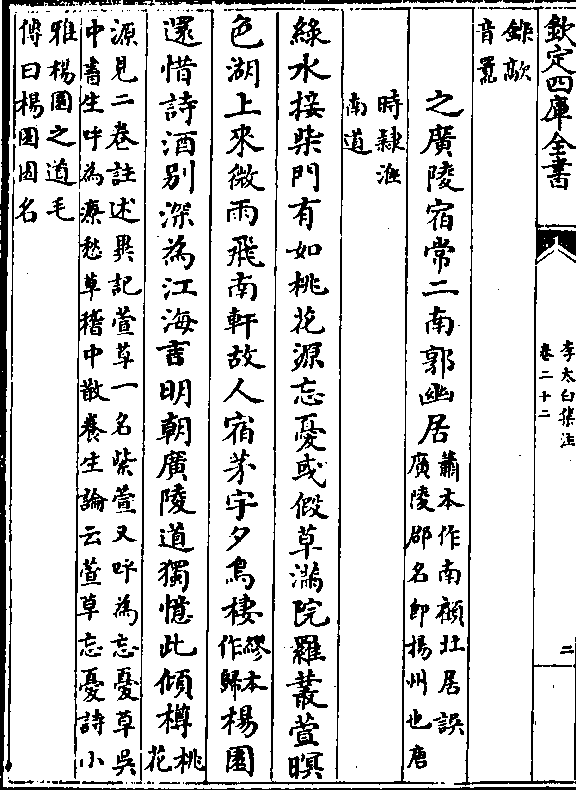 欽定四庫全書
李太白集注
卷二十二
二
音囂
之廣陵宿常二南郭幽居
蕭本作南顧北居誤
廣陵郡名即揚州也唐
時隸淮
南道
綠水接柴門有如桃花源忘憂或假草滿院羅叢萱暝
色湖上來微雨飛南軒故人宿茅宇夕鳥棲
繆本
作歸
楊園
還惜詩酒別深為江海言明朝廣陵道獨憶此傾樽
桃
花
源見二卷註述異記萱草一名紫萱又呼為忘憂草吳
中書生呼為療愁草嵇中散養生論云萱草忘憂詩小
雅楊園之道毛
傳曰楊園園名